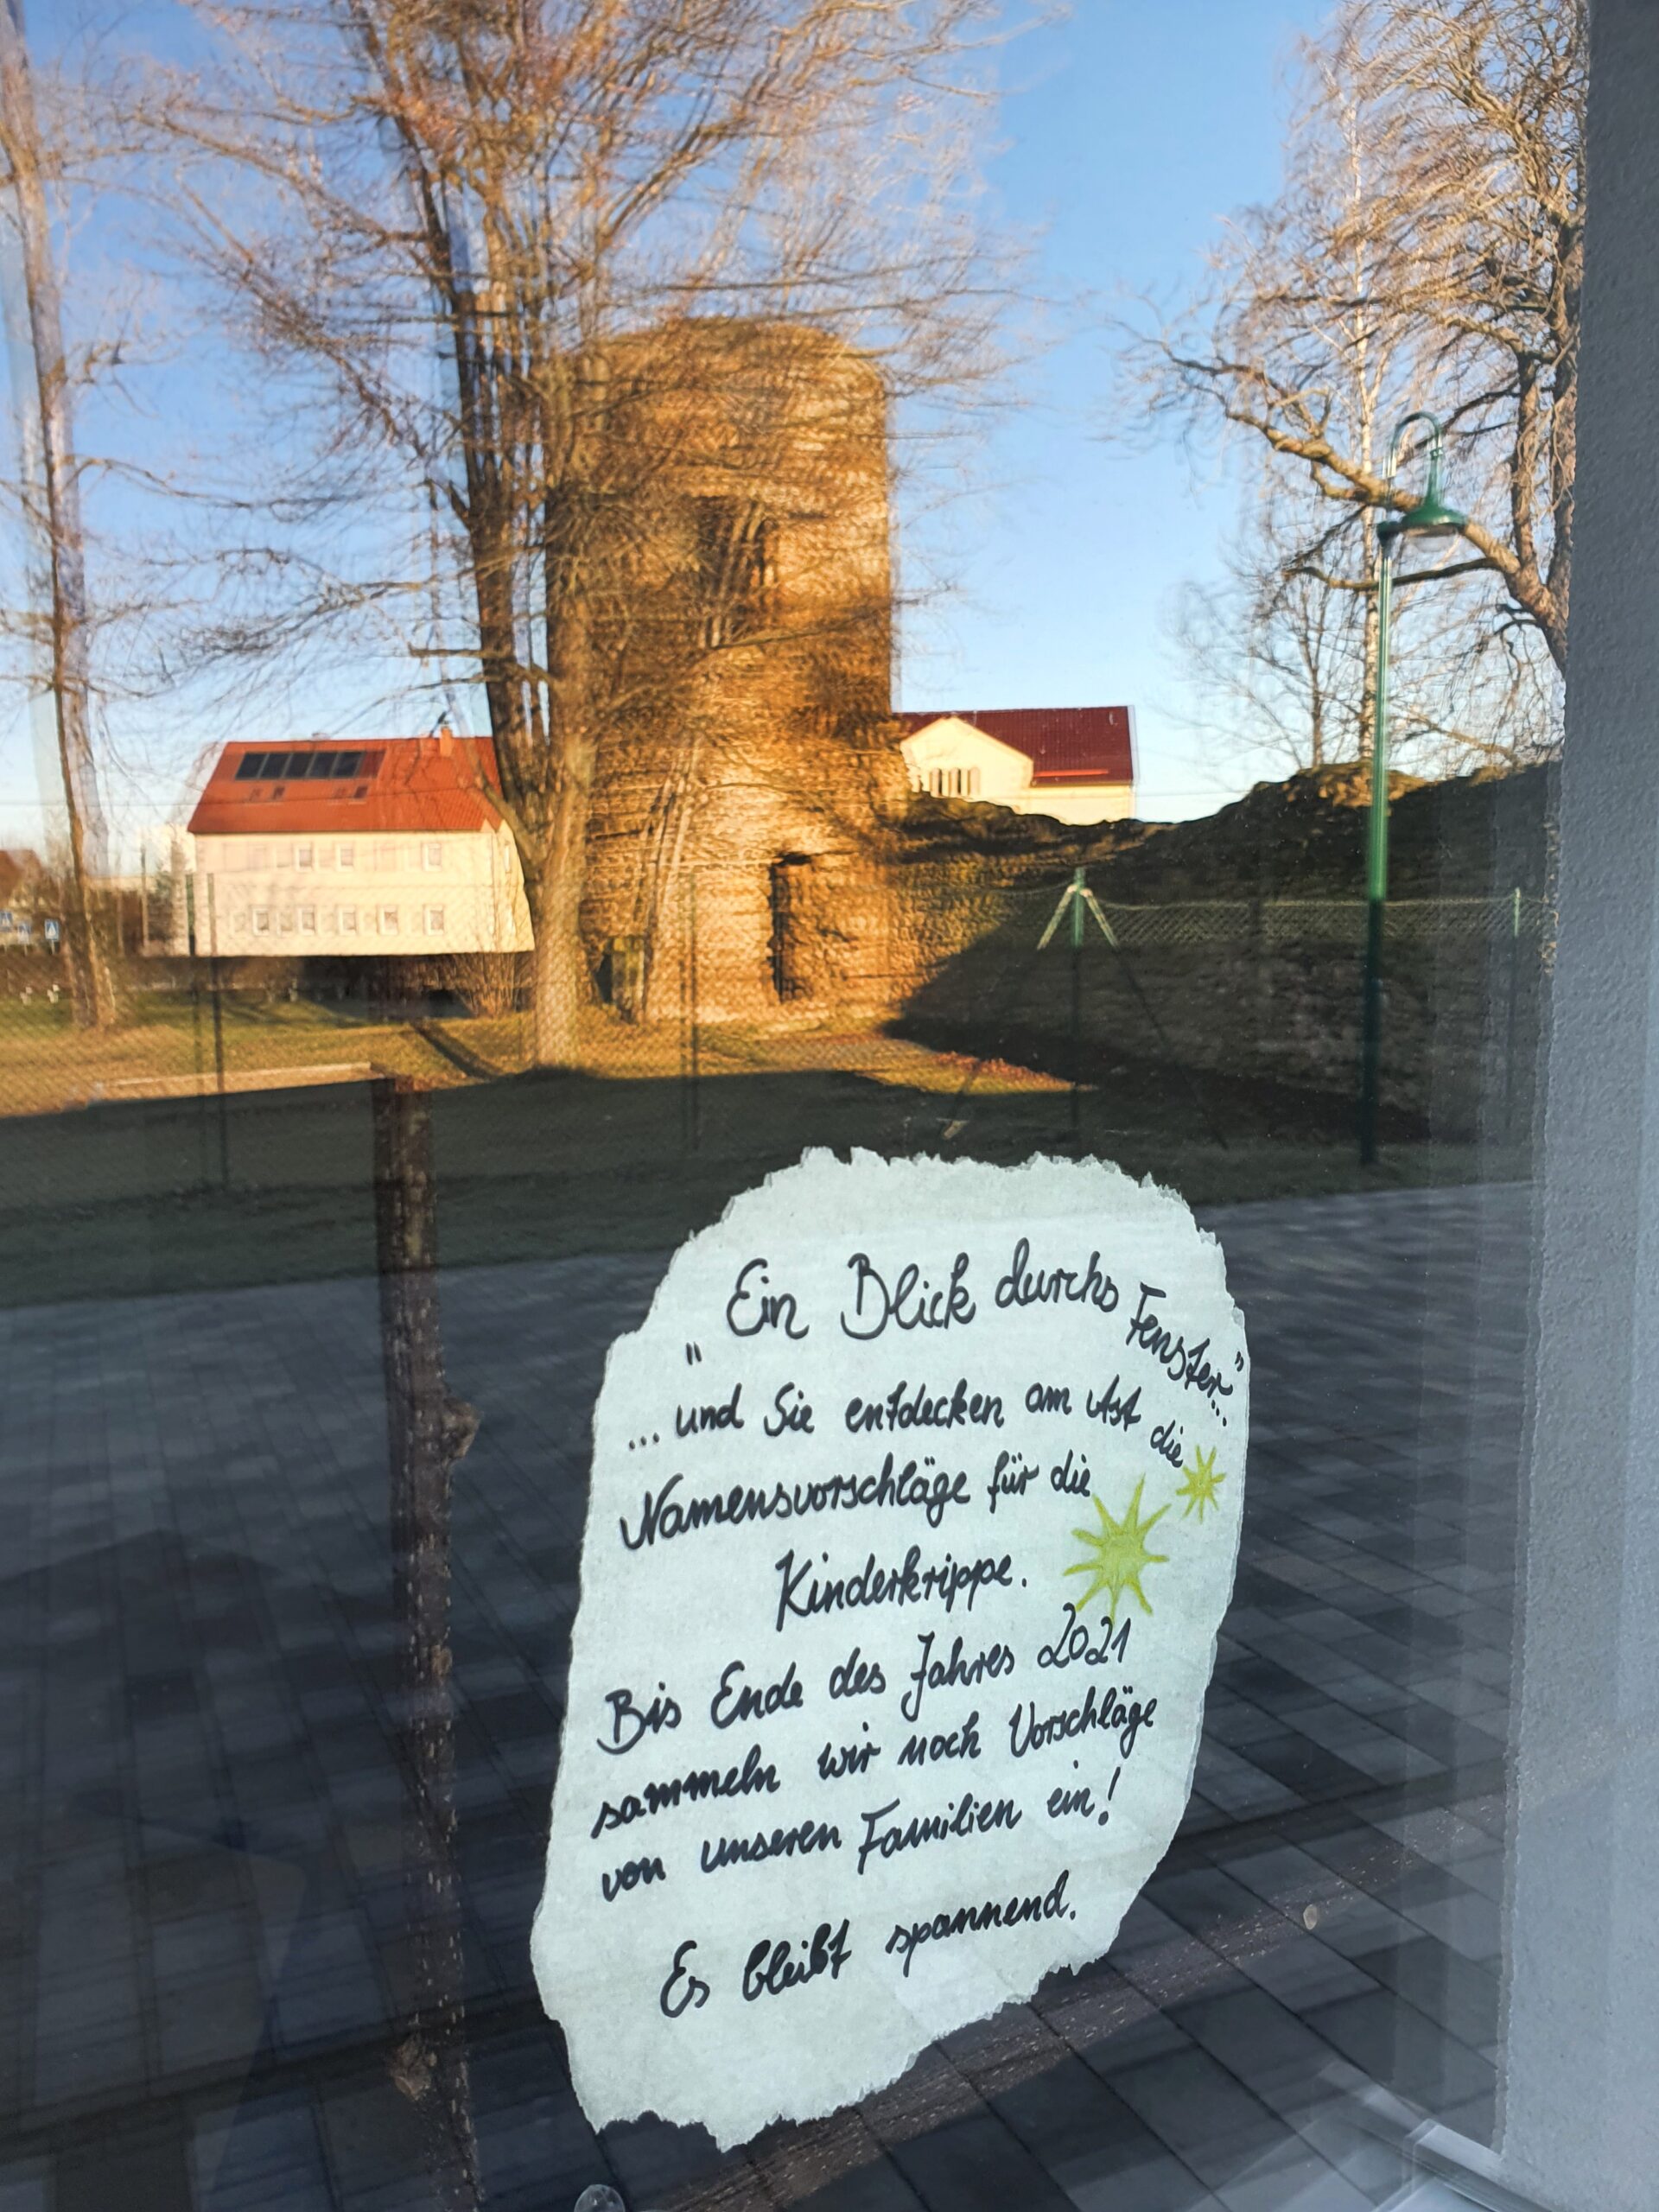 „Ein Blick durchs Fenster..."
...und Sie entdecken am Ast die
Namensvorschläge für die
Kinderkrippe.
Bis Ende des Jahres 2021
sammeln wir noch Vorschläge
von unseren Familien ein!
Es bleibt spannend.